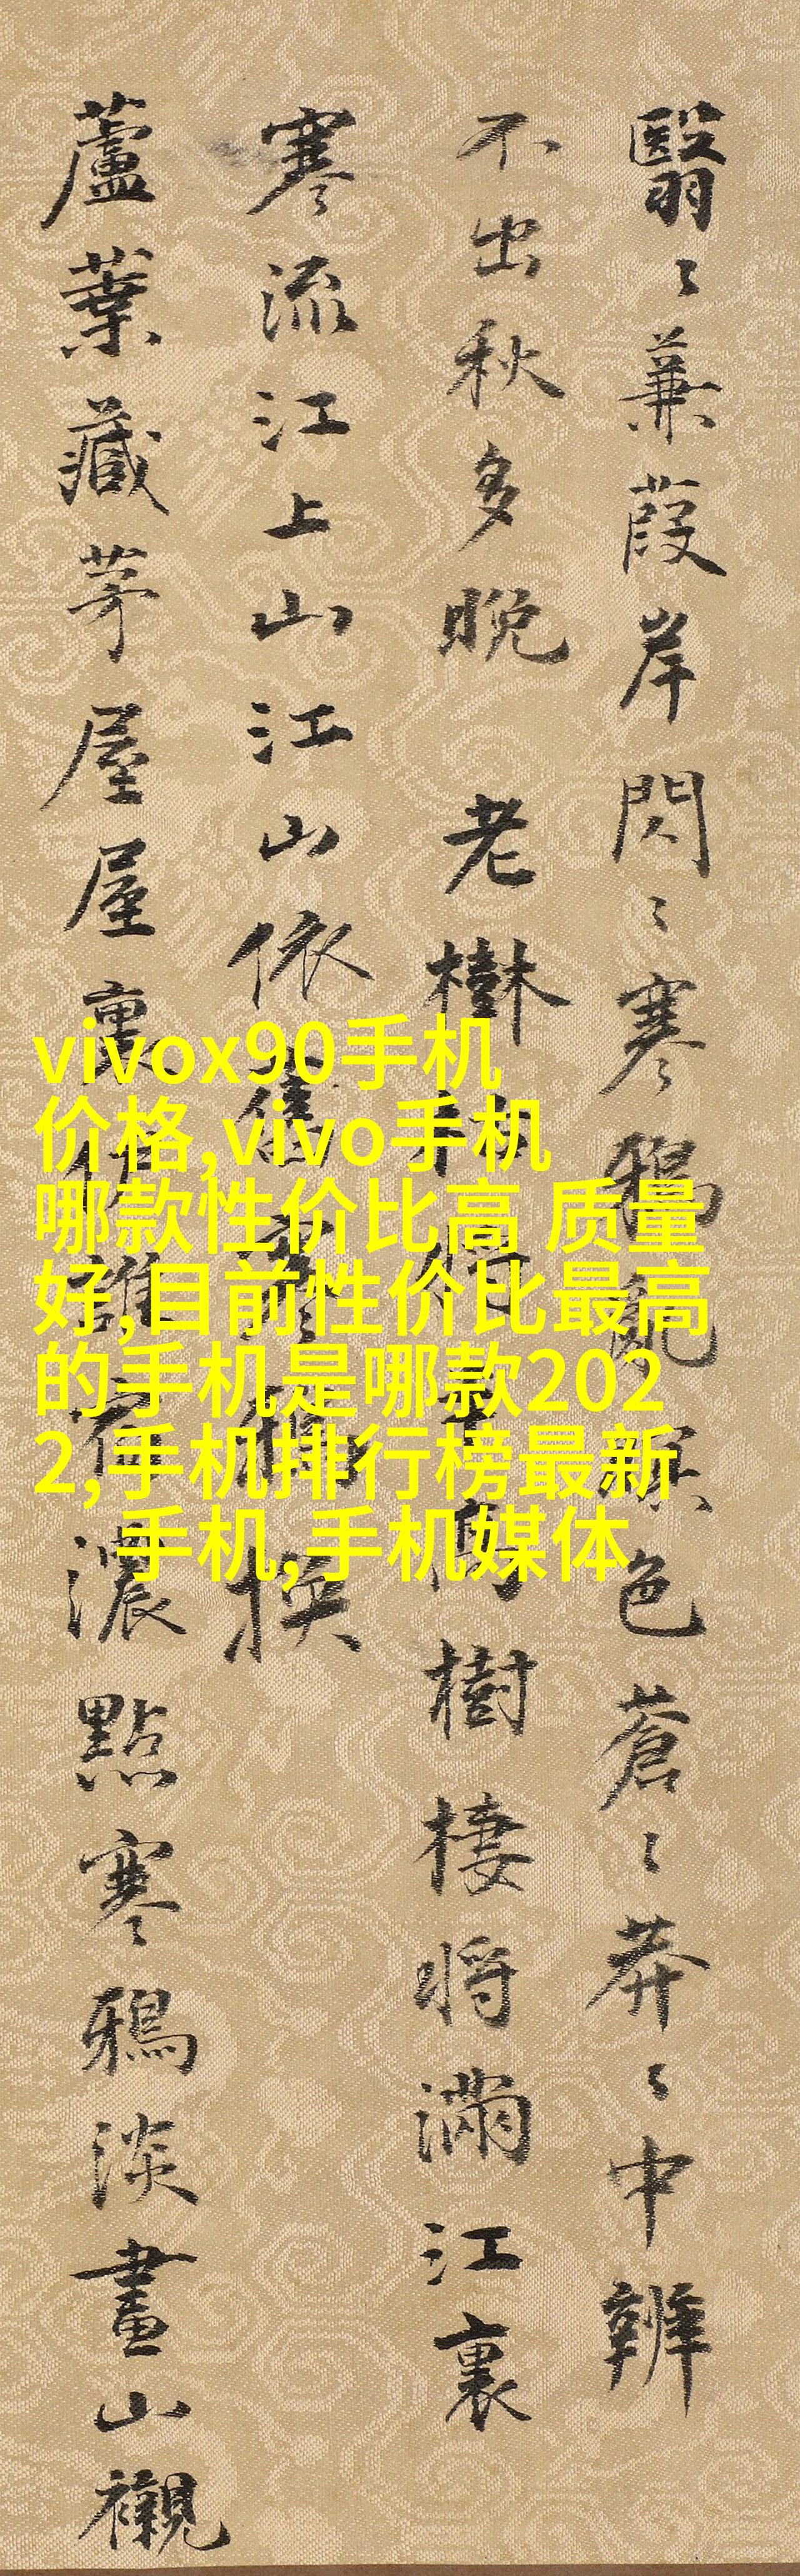 翳〻蒹葭岸閃〻寒鴉亂色蒼〻莽〻中辨
不出秋多晚 老樹樹棲將滿江裏
寒流江上山江山依舊換
蘆葉藏茅屋屋裏誰宿濃點寒鴉淡畫山襯
vivox90手机
价格,vivo手机
哪款性价比高 质量
好,目前性价比最高
的手机是哪款202
2,手机排行榜最新
手机,手机媒体